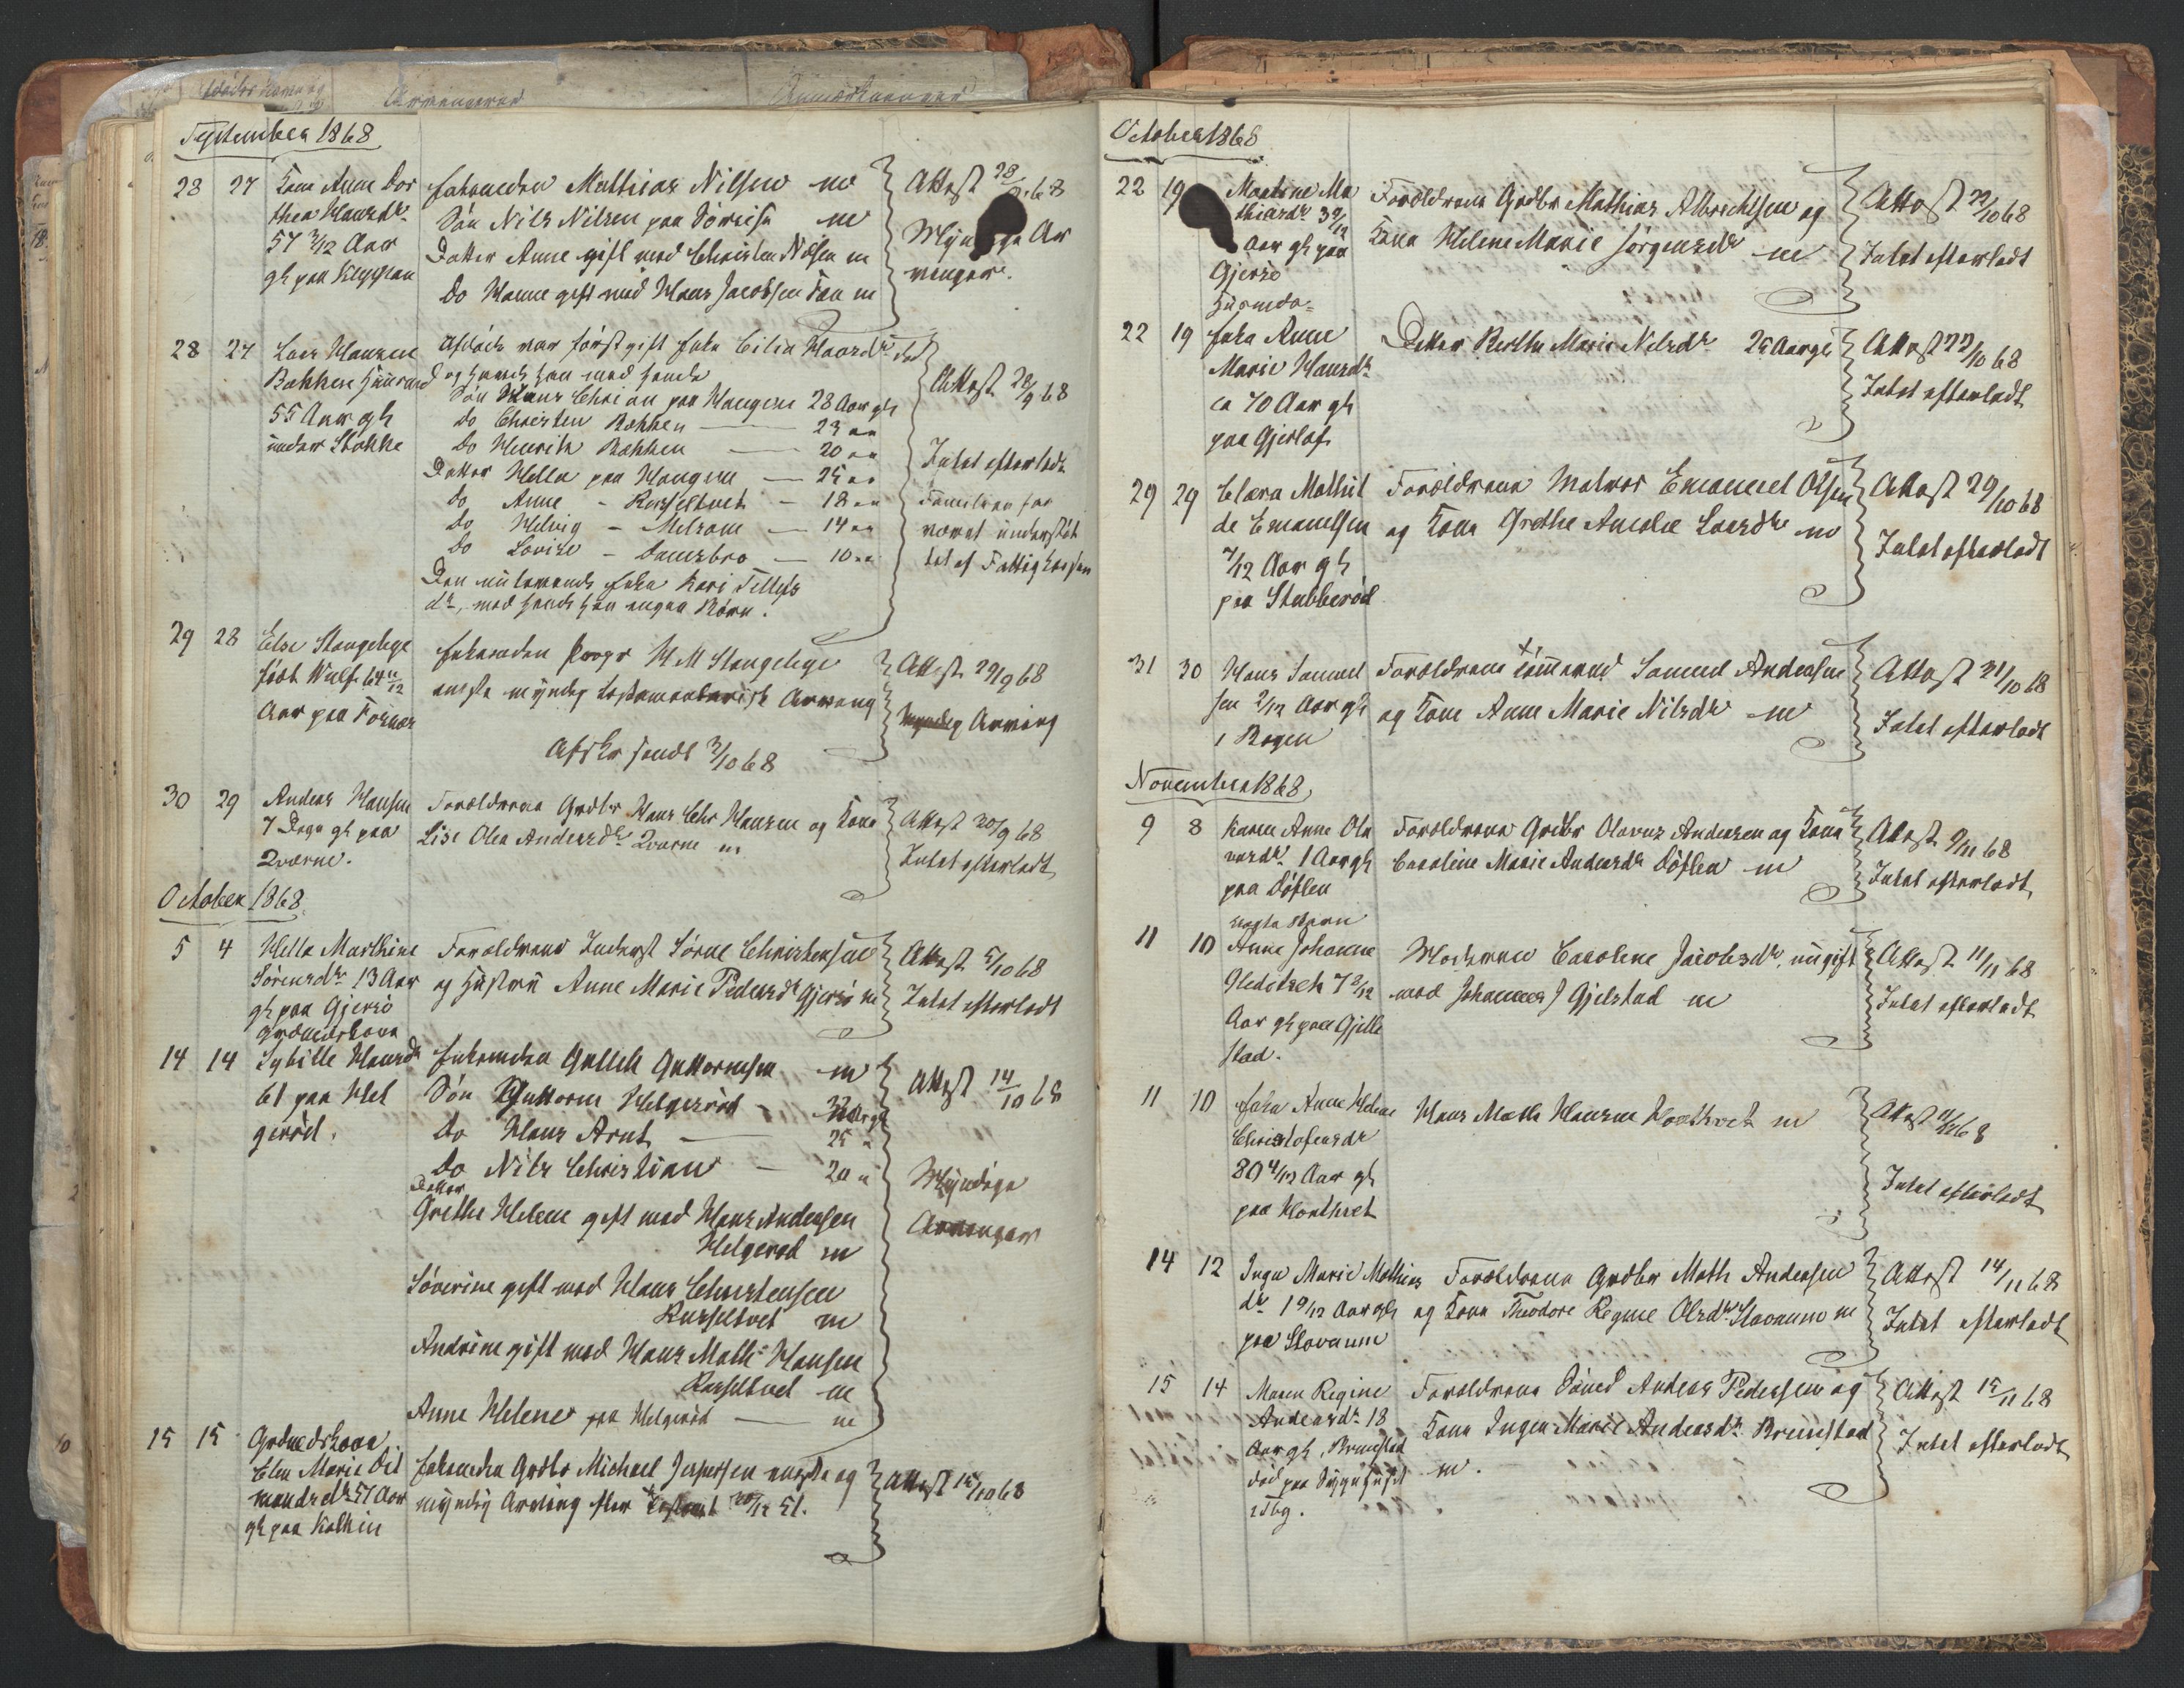 September 1868
28 27 Kone Anne Dor
thea Hansdr
57 3/12 Aar
gl paa
Enkemanden Mathias Nilsen m
Søn Nils Nilsen paa m
Datter Anne gift med Christen Nilsen m
Do Hanne gift med Hans Jacobsen m
Attest 28/9 68
Myndige Ar
vinger.
28 27 Lars Hansen
Bakken Huusmand
55 Aar gl
under Stokke
Afdøde var først gift Enke Cilia
og havde han med hende
Søn Hans Chrian paa Haugene 28 Aar gl
Do Christen Bakken — 23
Do Henrik Bakken — 20
Datter Hella paa Haugene — 25
Do Anne - Rørseltvet - 18
Do Helvig - Melsom - 14
Do Lovise - - 10
Den nulevende Enke Kari Tellefs
dr, med hende han ingen Børn.
Attest 28/9 68
Intet efterladt
Familien har
været understøt
tet af Fattigkassen
29 28 Else Stangebye
født Wulf 64 11/12
Aar paa Fornæs
Enkemanden H M Stangebye
eneste myndig testamentarisk Arving
Afskr sendt 3/10 68
Attest 29/9 68
Myndig Arving
30 29 Anders Hansen
7 Dage gl paa
Qværne.
Forældrene Grdbr Hans Chr Hansen og Kone
Lise Olea Andersdr Qværne m
Attest 30/9 68
Intet efterladt
October 1868
5 4 Hella Marthine
Sørensdr 13 Aar
gl paa Gjersø
Forældrene Inderst Sørnl Christensen
og Hustru Anne Marie Pedersdr Gjersø m
Attest 5/10 68
Intet efterladt
14 14 Sybille Hansdr
61 paa Hel
gerød.
Enkemanden Gullik Guttormsen m
Søn Guttorm Helgerød -
Do Hans Arnt — 25
Do Nils Christian — 20
Datter
Grethe Helene gift med Hans Andersen
Helgerød m
Søverine gift med Hans Christensen
Rørseltvet m
Andrine gift med Hans Math Hansen
Rørseltvet m
Anne Helene paa Helgerød — m
Attest 14/10 68
Myndige
Arvinger
15 15 Grdmdskone
Elen Marie
51 Aar
gl paa
Enkemanden Grdbr Michael Jespersen eneste og
myndig Arving efter Testamt 51.
Attest 15/10 68
October 1868
22 19 Mathine Ma
thiasdr 3 9/12
Aar gl paa
Gjersø
Forældrene Grdbr Mathias Albrechtsen og
Kone Helene Marie Jørgensdr m
Attest 22/10 68
Intet efterladt
22 19 Enke Anne
Marie Hansdr
ca 70 Aar gl
paa Gjerlaf
Datter Berthe Marie Nilsdr 25 Aar gl
Attest 22/10 68
Intet efterladt
29 29 Clara Mathil
de Emanelsen
7/12 Aar gl
paa Stubberød
Forældrene Matros Emanuel Olsen
og Kone Grethe Amalie Larsdr m
Attest 29/10 68
Intet efterladt
31 30 Hans Samuel
sen 2/12 Aar gl
i Bogen
Forældrene Tømmermd Samuel Andersen
og Kone Anne Marie Nilsdr m
Attest 31/10 68
Intet efterladt
November 1868.
9 8 Karen Anne Ola
vesdr 1 Aar gl
paa Døflen
Forældrene Grdbr Olavus Andersen og Kone
Caroline Marie Andersdr Døflen m
Attest 9/11 68
Intet efterladt
11 10 uægte Barn
Anne Johanne
Gleditsch 7 2/12
Aar gl paa Gjelle
stad.
Moderen Caroline Jacobsdr, nu gift
med Johannes J Gjelstad m
Attest 11/11 68
Intet efterladt
11 10 Enke Anne Helene
Christofersdr
80 4/12 Aar gl
paa
Hans Math Hansen m
Attest 11/11 68
Intet efterladt
14 12 Inga Marie Mathias
dr 1 9/12 Aar gl
paa Stovum
Forældrene Grdbr Math Andersen
og Kone Theodore Regine Olsdr m
Attest 14/11 68
Intet efterladt
15 14 Maren Regine
Andersdr 18
Aar gl, Brunstad
død paa Sygehuset
i Tbg.
Forældrene Anders Pedersen og
Kone Inger Marie Andersdr Brunstad
m.
Attest 15/11 68
Intet efterladt